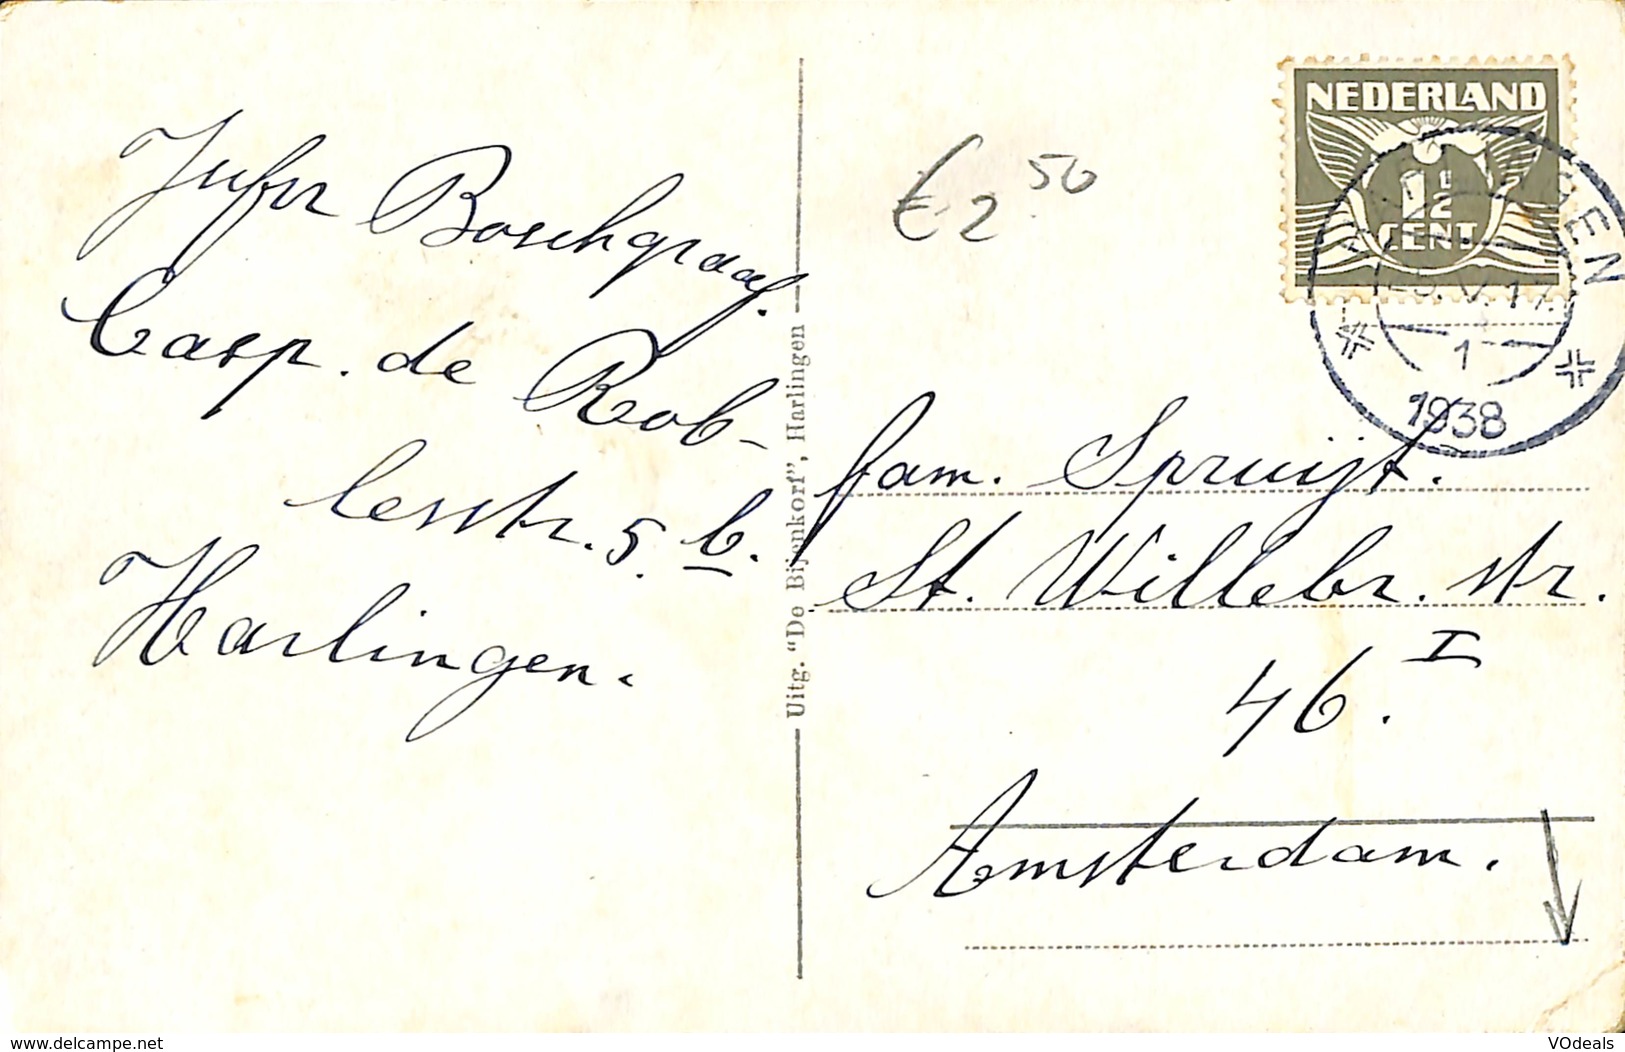 Jufr Boschgraaf.
Casp. de Rob-
lesstr. 5. b.
Harlingen.
Uitg. "De Bijenkorf", Harlingen
€ 2.50
NEDERLAND
1½
CENT
HARLINGEN
1
1938
fam. Spruijt.
St. Willebr. str.
46. I
Amsterdam.
www.delcampe.net
VOdeals